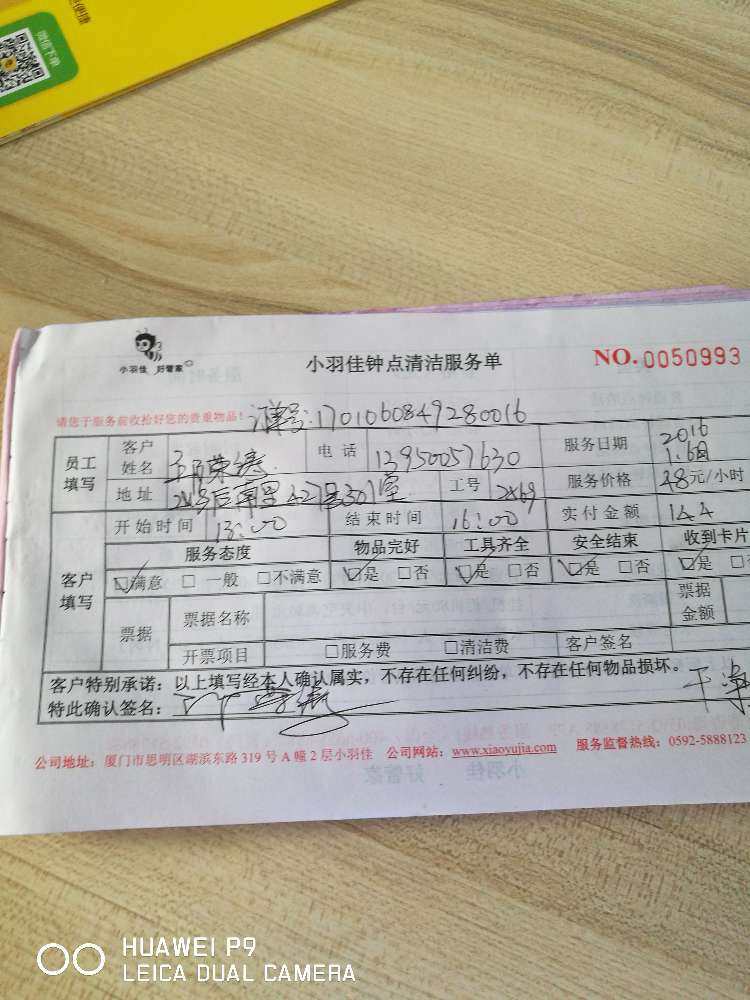 便捷
微信下单
小羽佳 好管家
小羽佳钟点清洁服务单
NO. 0050993
请您于服务前收拾好您的贵重物品!
单号:1701060849280016
员工填写
客户姓名
电话 13950057630
服务日期 2016
地址 后南里427号301室
工号 2869
服务价格 48元/小时
开始时间 13:00
结束时间 16:00
实付金额 144
客户填写
服务态度 物品完好 工具齐全 安全结束 收到卡片
☑满意 □一般 □不满意 ☑是 □否 ☑是 □否 ☑是 □否 ☑是
票据
票据名称
票据金额
开票项目 □服务费 □清洁费 客户签名
客户特别承诺:以上填写经本人确认属实,不存在任何纠纷,不存在任何物品损坏。
特此确认签名:
干净
公司地址:厦门市思明区湖滨东路 319 号 A 幢 2 层小羽佳 公司网站:www.xiaoyujia.com 服务监督热线:0592-5888123
HUAWEI P9
LEICA DUAL CAMERA